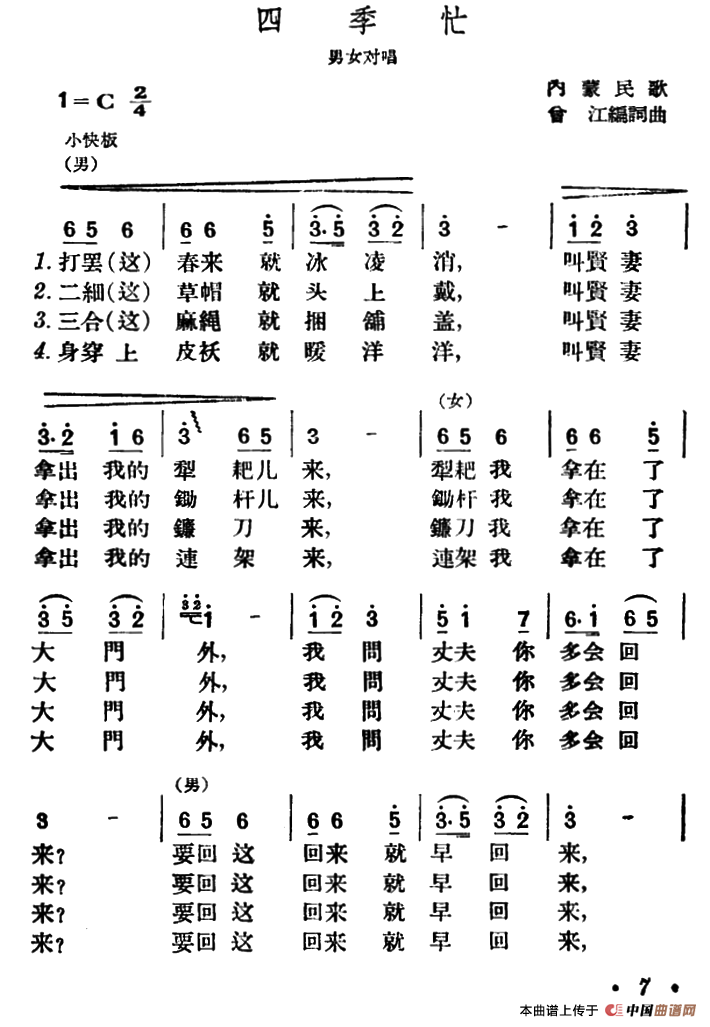 四季忙
男女对唱
1=C 2/4
內蒙民歌
曾 江編詞曲
小快板
(男)
6 5 6 | 6 6 5 | 3·5 3 2 | 3 - | 1 2 3 |
1.打罢(这) 春来 就 冰 凌 消, 叫賢妻
2.二細(这) 草帽 就 头 上 戴, 叫賢妻
3.三合(这) 麻繩 就 捆 舖 盖, 叫賢妻
4.身穿上 皮袄 就 暖 洋 洋, 叫賢妻
(女)
3·2 1 6 | 3 6 5 | 3 - | 6 5 6 | 6 6 5 |
拿出 我的 犁 耙儿 来, 犁耙我 拿在 了
拿出 我的 鋤 杆儿 来, 鋤杆我 拿在 了
拿出 我的 鐮 刀 来, 鐮刀我 拿在 了
拿出 我的 連 架 来, 連架我 拿在 了
3 5 3 2 | 3 2 1 - | 1 2 3 | 5 1 7 | 6·1 6 5 |
大 門 外, 我 問 丈夫 你 多会 回
大 門 外, 我 問 丈夫 你 多会 回
大 門 外, 我 問 丈夫 你 多会 回
大 門 外, 我 問 丈夫 你 多会 回
(男)
3 - | 6 5 6 | 6 6 5 | 3·5 3 2 | 3 - |
来? 要回 这 回来 就 早 回 来,
来? 要回 这 回来 就 早 回 来,
来? 要回 这 回来 就 早 回 来,
来? 要回 这 回来 就 早 回 来,
· 7 ·
本曲谱上传于 中国曲谱网